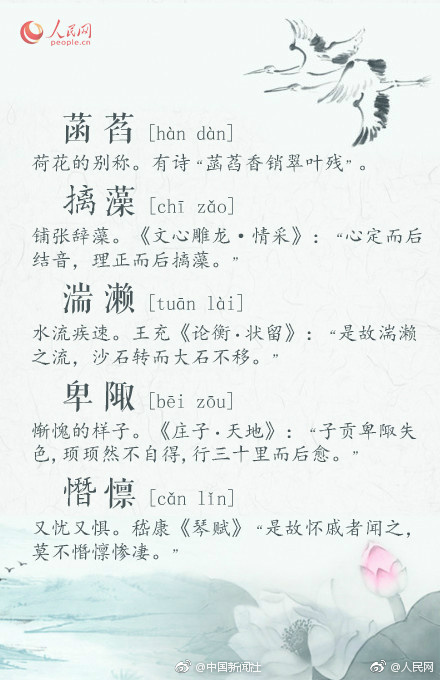 人民网
people.cn
菡萏 [hàn dàn]
荷花的别称。有诗“菡萏香销翠叶残”。
摛藻 [chī zǎo]
铺张辞藻。《文心雕龙·情采》：“心定而后
结音，理正而后摛藻。”
湍濑 [tuān lài]
水流疾速。王充《论衡·状留》：“是故湍濑
之流，沙石转而大石不移。”
卑陬 [bēi zōu]
惭愧的样子。《庄子·天地》：“子贡卑陬失
色，顼顼然不自得，行三十里而后愈。”
憯懔 [cǎn lǐn]
又忧又惧。嵇康《琴赋》“是故怀戚者闻之，
莫不憯懔惨凄。”
@中国新闻社
@人民网